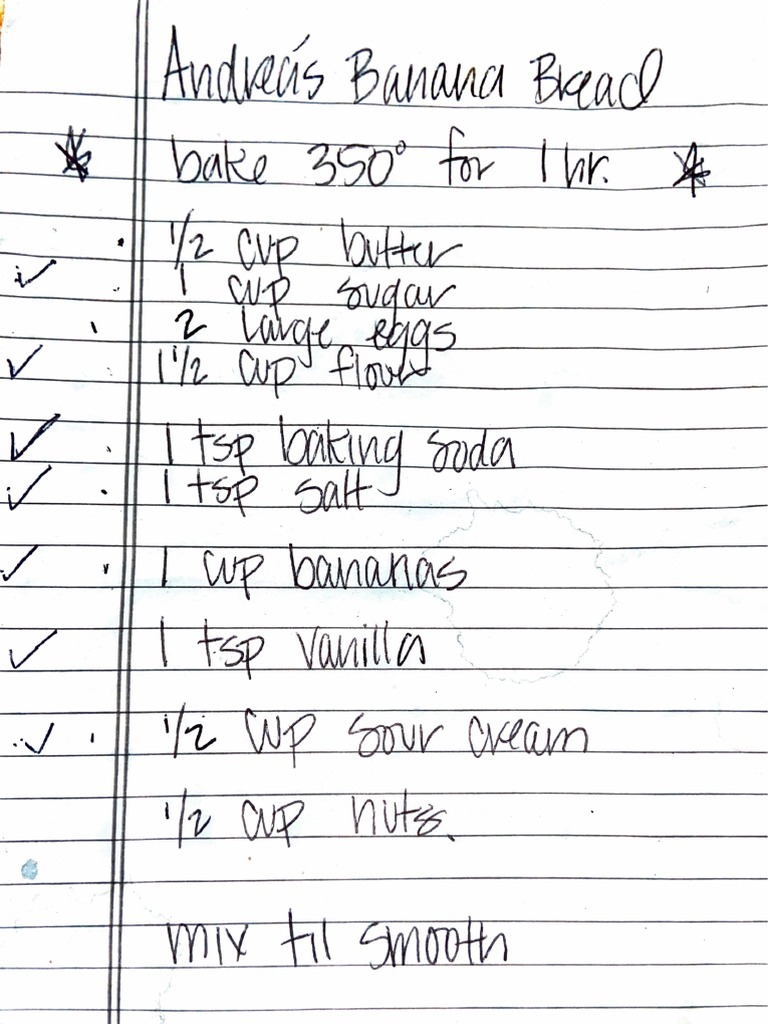 Andrea's Banana Bread
* bake 350° for 1 hr. *
1/2 cup butter
1 cup sugar
2 large eggs
1 1/2 cup flour
1 tsp baking soda
1 tsp salt
1 cup bananas
1 tsp vanilla
1/2 cup sour cream
1/2 cup nuts.
mix til smooth